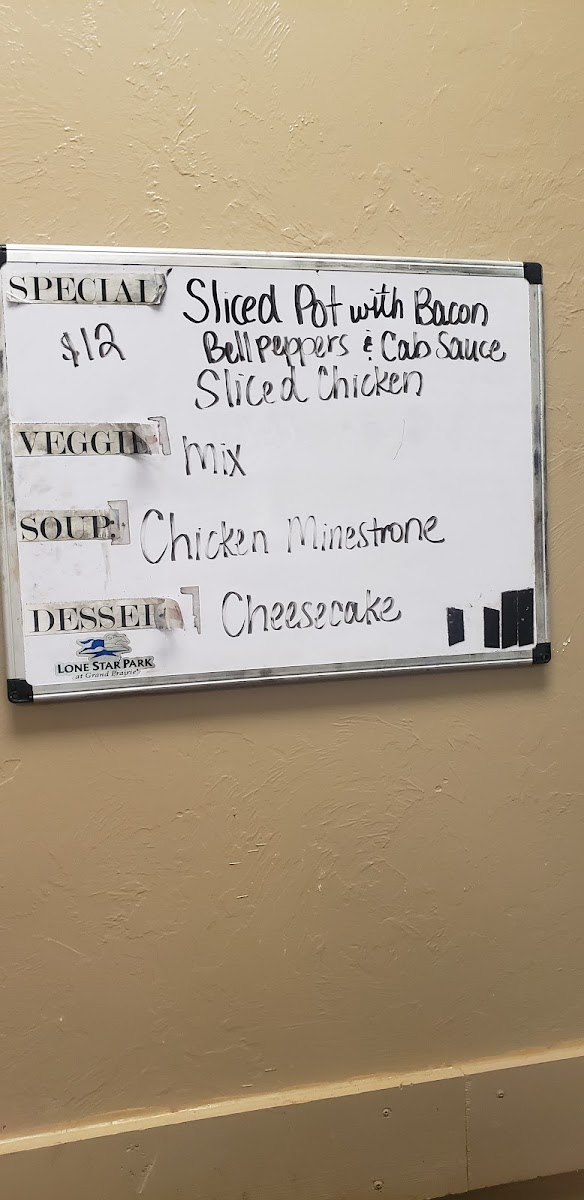 SPECIAL Sliced Pot with Bacon
$12 Bell peppers & Cab Sauce
Sliced Chicken
VEGGIE mix
SOUP: Chicken Minestrone
DESSERT Cheesecake
LONE STAR PARK
at Grand Prairie